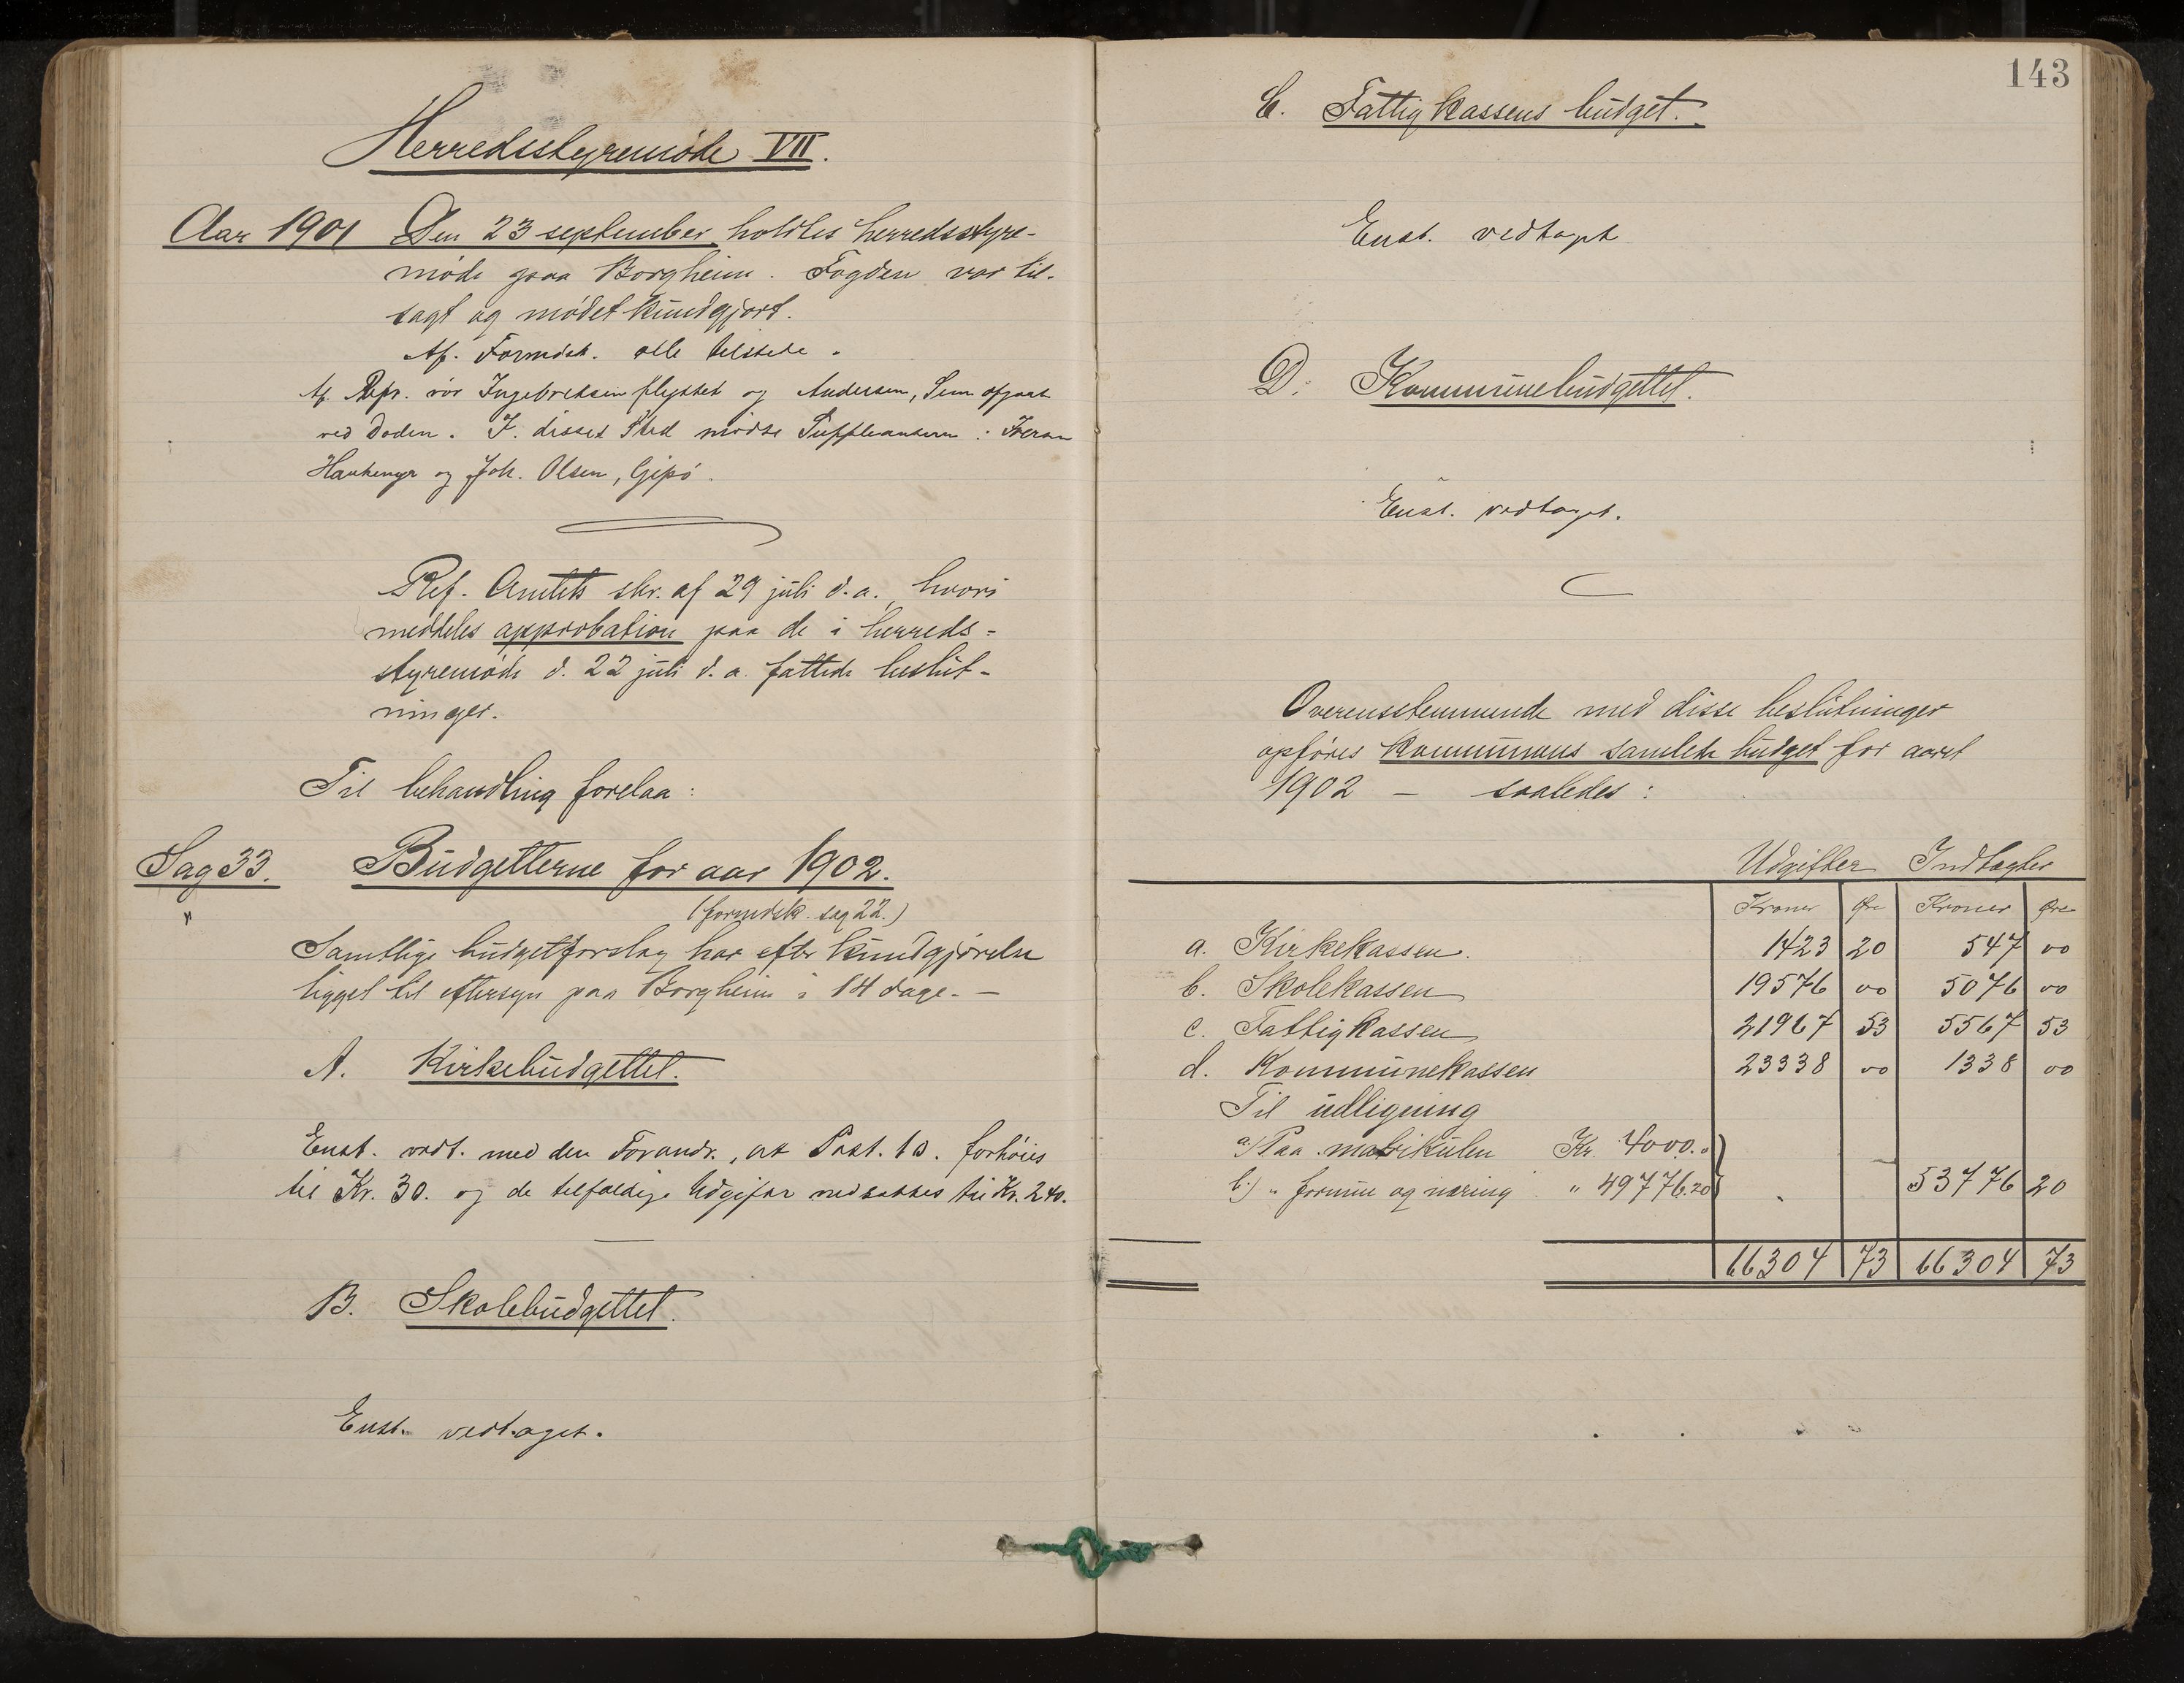 Herredsstyremøde VII.
Aar 1901 Den 23 september holdtes herredsstyre-
møde paa Borgheim. Fogden var til-
sagt og mødet kundgjort.
Af. Formdsk. alle tilstede.
Af. Repr. var Ingebretsen flyttet og Andersen, Sem afgaat
ved Døden. I disses Sted mødte Suppleanterne:
Haukenyr og Joh. Olsen, Gipø.
Ref. Amtets skr. af 29 juli d.a., hvori
meddeles approbation paa de i herreds=
styremøde d. 22 juli d.a. fattede beslut-
ninger.
Til behandling forelaa:
Sag 33. Budgetterne for aar 1902.
" (formdsk. sag 22.)
Samtlige budgetforslag har efter kundgjørelse
ligget til eftersyn paa Borgheim i 14 dage. —
A. Kirkebudgettet.
Enst. vedt. med den Forandr., at Post. 10. forhøies
til Kr. 30. og de tilfældige Udgifter nedsættes til Kr. 240.
B. Skolebudgettet.
Enst. vedtaget.
143
C. Fattigkassens budget.
Enst. vedtaget
D: Kommunebudgettet.
Enst. vedtaget.
Overensstemmende med disse beslutninger
opføres kommunens samlede budget for aaret
1902 — saaledes:
Udgifter Indtægter
Kroner Øre Kroner Øre
a. Kirkekassen. 1423 20 547 00
b. Skolekassen 19576 00 5076 00
c. Fattigkassen 21967 53 5567 53
d. Kommunekassen 23338 00 1338 00
Til udligning
a) Paa matrikulen Kr. 4000.0
b.) " formue og næring " 49776.20 53776 20
66304 73 66304 73